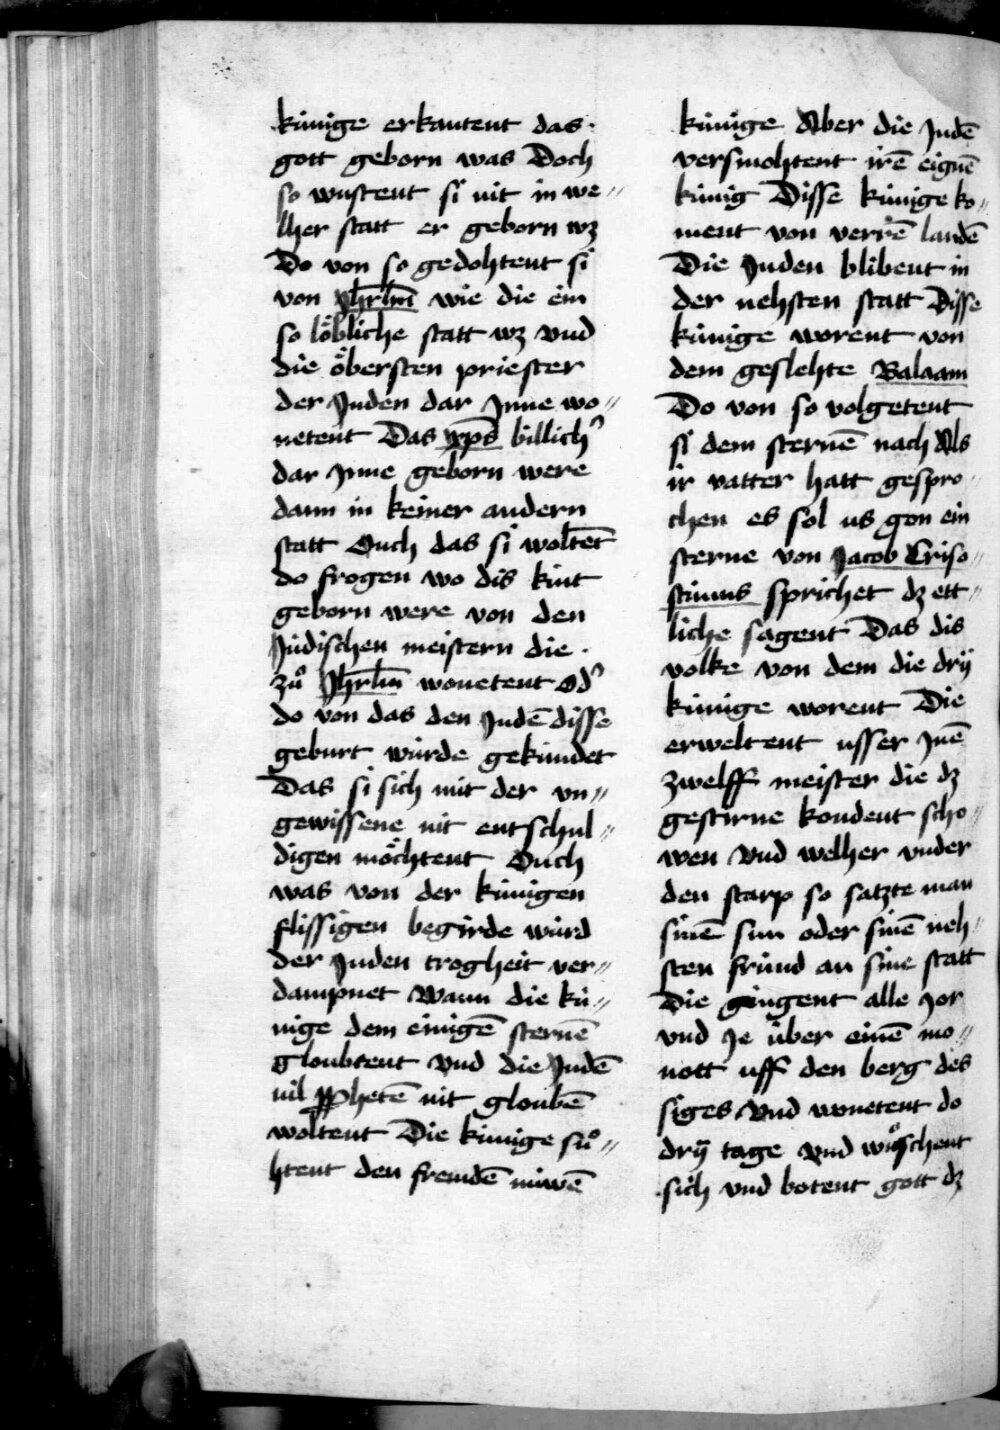 künige erkantent das
gott geborn was Doch
so wustent si nit in we〃
lher statt er geborn wz
Do von so gedohtent si
von Jhrlm̄ wie die ein
so loͤbliche statt wz vnd
die oͤbersten priester
der Juden dar Jnne wo〃
netent Das xp̄s billich
dar Jnne geborn were
dann in keiner andern
statt Ouch das si woltēt
do frogen wo dis kint
geborn were von den
Jüdischen meistern die
zuͦ Jhrlm̄ wonetent Od'
do von das den Judē disse
geburt würde gekündet
Das si sich mit der vn〃
gewissene nit entschul〃
digen moͤchtent Ouch
was von der künigen
flissigen begirde würd
der Juden trogheit ver〃
dampnet Wann die kü〃
nige dem einigē sternē
gloubtent Vnd die Judē
vil ꝓphetē nit gloubē
woltent Die künige suͦ〃
htent den fremdē nüwē
künige Aber die Judē
versmohtent irē eignē
künig Disse künige ko〃
ment von verrē landē
Die Juden blibent in
der nehsten statt Disse
künige worent von
dem geslehte Balaam
Do von so volgetent
si dem sternē nach Als
ir vatter hatt gespro〃
chen es sol us gon ein
sterne von Jacob Criso〃
stimus sprichet dz ett〃
liche sagent Das dis
volke von dem die drÿ
künige worent Die
erweltent usser Jnē
zwelff meister die dz
gestirne kondent scho〃
wen Vnd welher vnder
den starp so satzte man
sinē sun oder sinē neh〃
sten fründ an sine statt
Die gingent alle Jor
vnd Je über einē mo〃
nott uff den berg des
siges Vnd wonetent do
drÿ tage Vnd wuͦschent
sich vnd botent gott dz